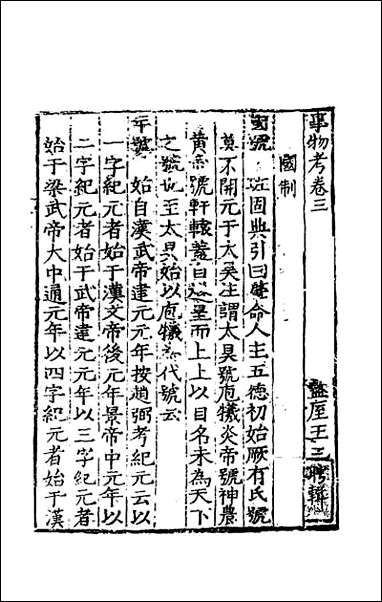 事物考卷三 盩厔王三聘輯
國制
國號 班固典引曰肇命人主五德初始厥有氏號
莫不開元于太昊注謂太昊號庖犧炎帝號神農
黃帝號軒轅蓋自遂皇而上上以目名未為天下
之號也至太昊始以庖犧為代號云
年號 始自漢武帝建元元年按趙弼考紀元云以
一字紀元者始于漢文帝後元年景帝中元年以
二字紀元者始于武帝建元元年以三字紀元者
始于梁武帝大中通元年以四字紀元者始于漢